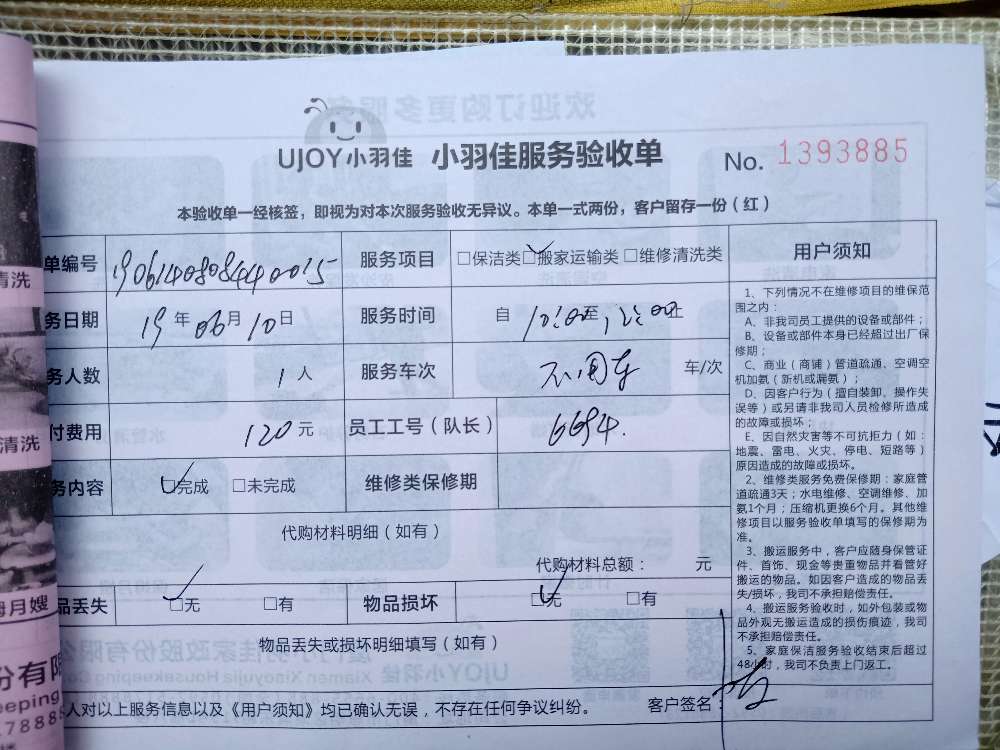 UJOY小羽佳 小羽佳服务验收单 No. 1393885
本验收单一经核签，即视为对本次服务验收无异议。本单一式两份，客户留存一份（红）
单编号 服务项目 □保洁类□搬家运输类 □维修清洗类
务日期 19年06月10日 服务时间 自 10:00至12:00止
务人数 1人 服务车次 不用车 车/次
付费用 120元 员工工号（队长） 6694.
务内容 □完成 □未完成 维修类保修期
代购材料明细（如有）
代购材料总额： 元
品丢失 □无 □有 物品损坏 □无 □有
物品丢失或损坏明细填写（如有）
人对以上服务信息以及《用户须知》均已确认无误，不存在任何争议纠纷。 客户签名：
用户须知
1、下列情况不在维修项目的维保范
围之内：
A、非我司员工提供的设备或部件；
B、设备或部件本身已经超过出厂保
修期；
C、商业（商铺）管道疏通、空调空
机加氨（新机或漏氨）；
D、因客户行为（擅自装卸、操作失
误等）或另请非我司人员检修所造成
的故障或损坏；
E、因自然灾害等不可抗拒力（如：
地震、雷电、火灾、停电、短路等）
原因造成的故障或损坏。
2、维修类服务免费保修期：家庭管
道疏通3天；水电维修、空调维修、加
氨1个月；压缩机更换6个月。其他维
修项目以服务验收单填写的保修期为
准。
3、搬运服务中，客户应随身保管证
件、首饰、现金等贵重物品并看管好
搬运的物品。如因客户造成的物品丢
失/损坏，我司不承担赔偿责任。
4、搬运服务验收时，如外包装或物
品外观无搬运造成的损伤痕迹，我司
不承担赔偿责任。
5、家庭保洁服务验收结束后超过
48小时，我司不负责上门返工。
清洗
清洗
月嫂
份有限
eping